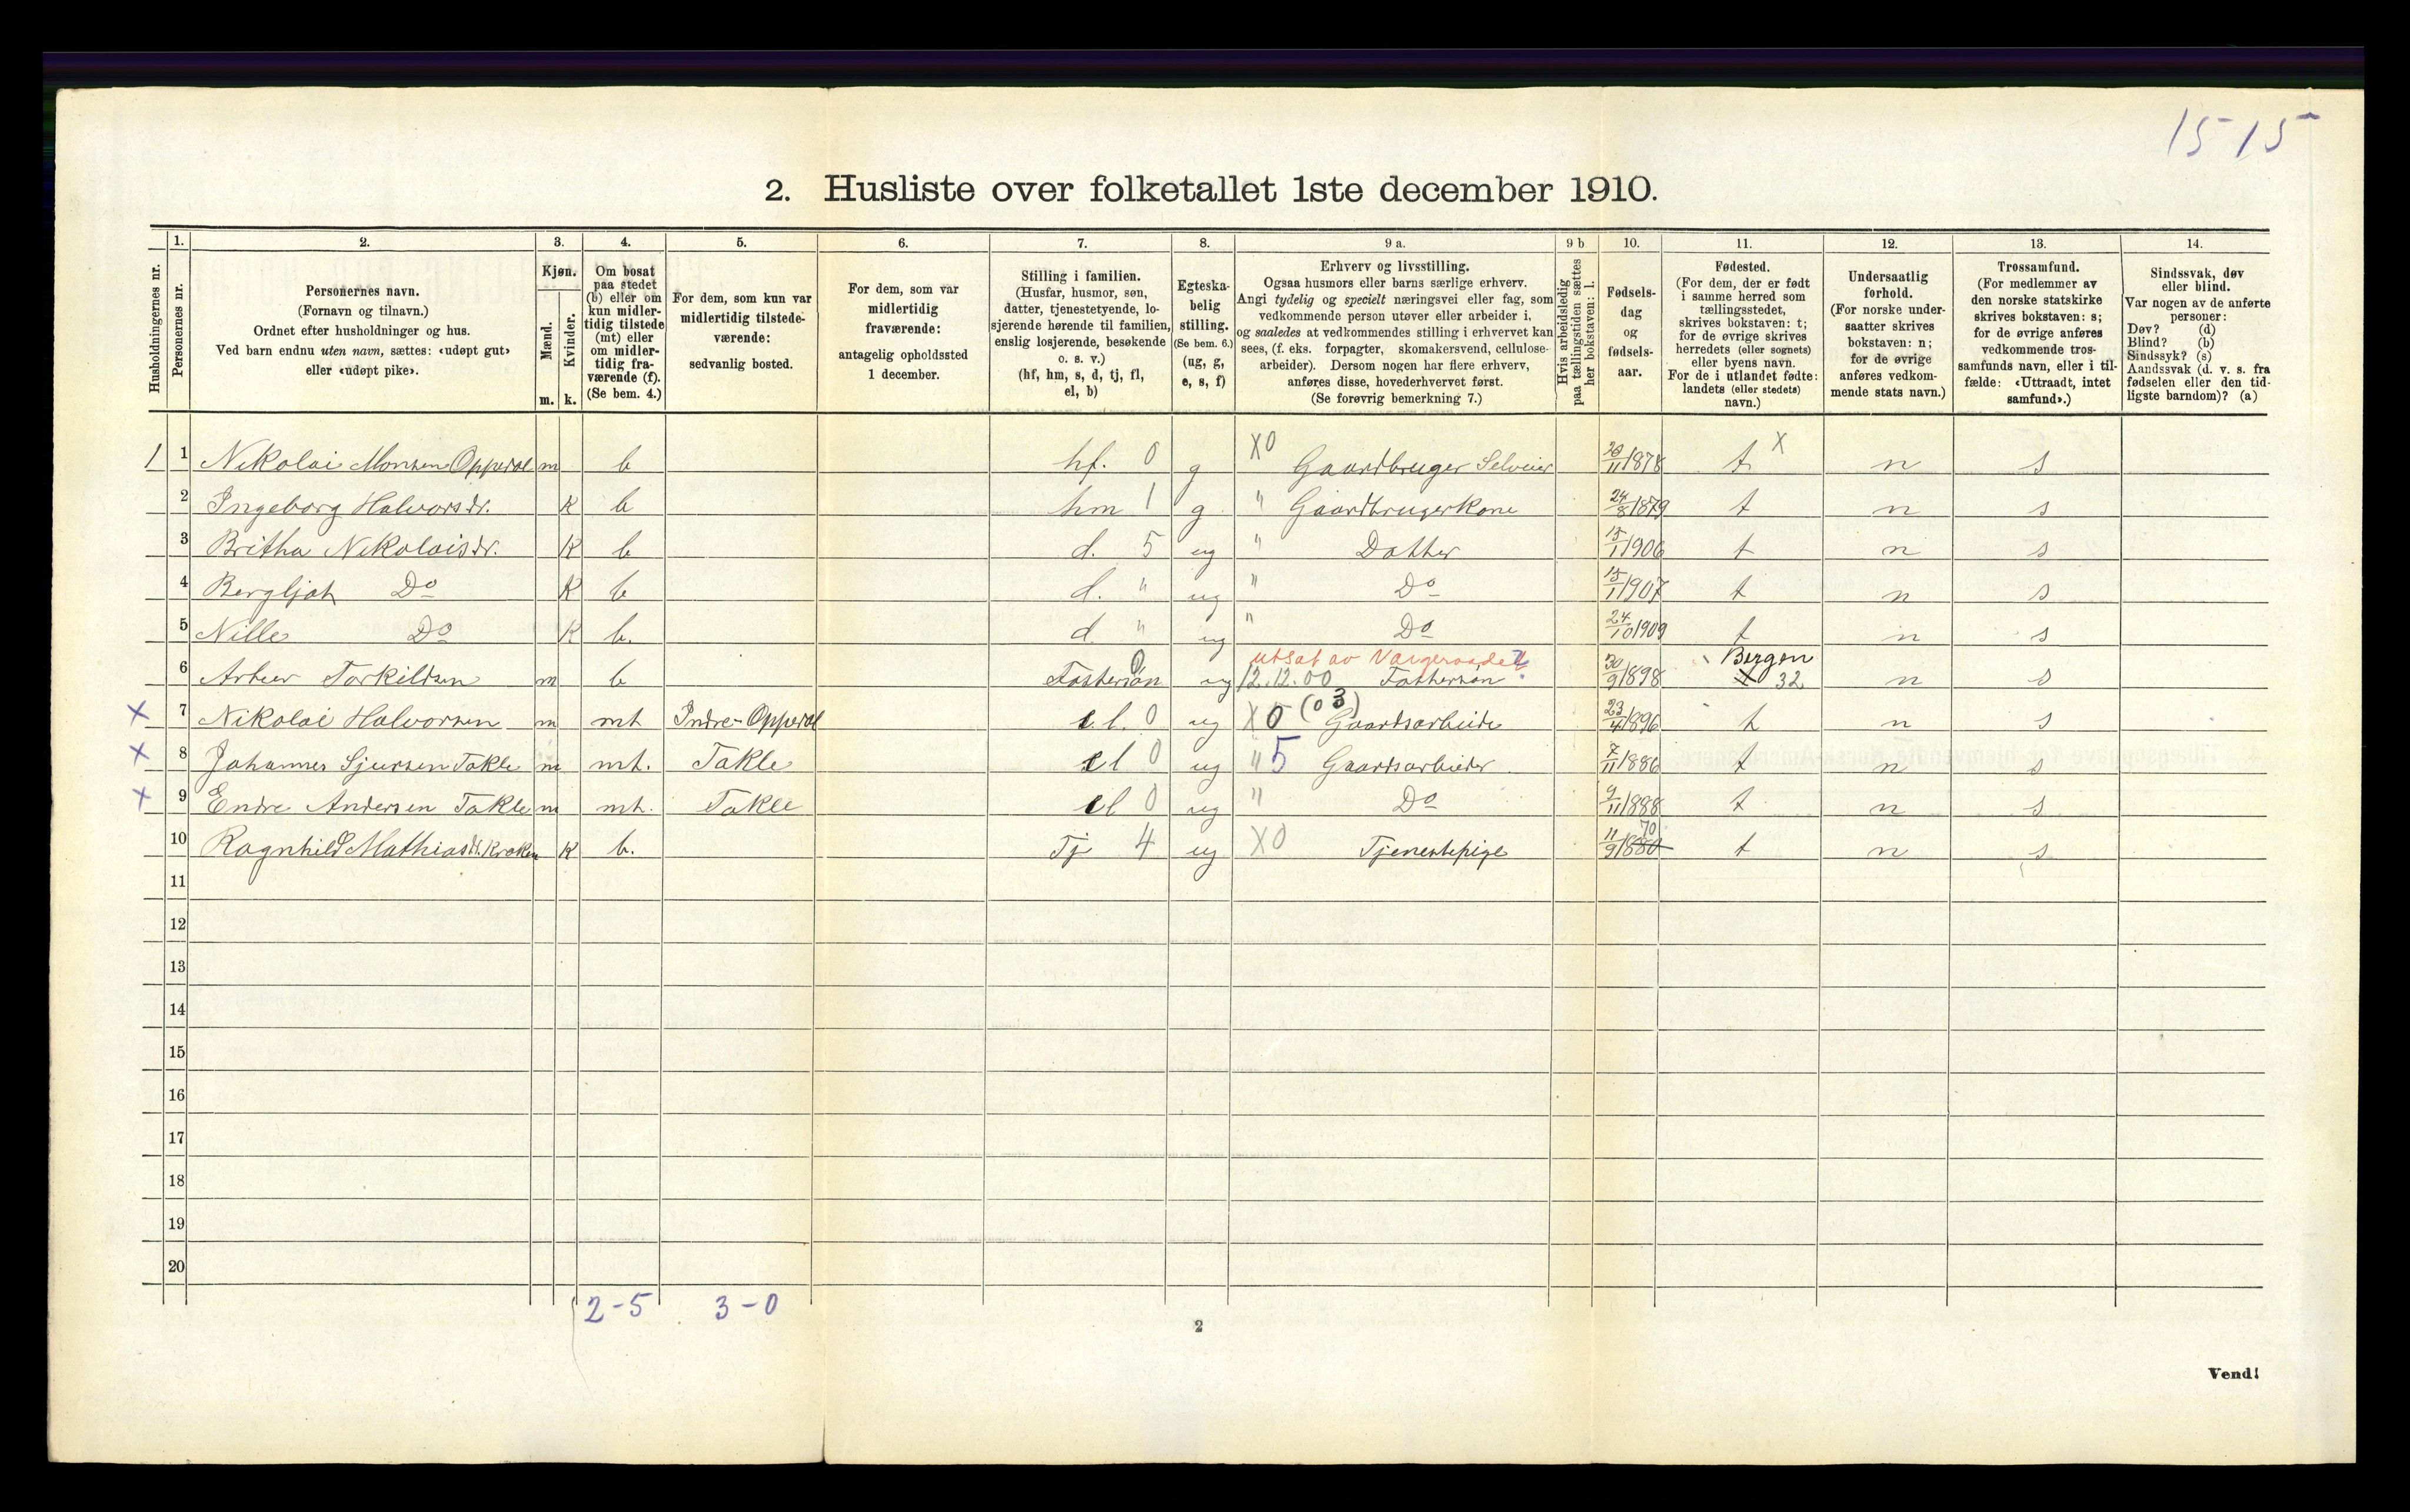 15 15
2. Husliste over folketallet 1ste december 1910.
Husholdningernes nr.
1. Personernes nr.
2. Personernes navn.
(Fornavn og tilnavn.)
Ordnet efter husholdninger og hus.
Ved barn endnu uten navn, sættes: «udøpt gut»
eller «udøpt pike».
3. Kjøn.
Mænd. Kvinder.
m. k.
4. Om bosat
paa stedet
(b) eller om
kun midler-
tidig tilstede
(mt) eller
om midler-
tidig fra-
værende (f).
(Se bem. 4.)
5. For dem, som kun var
midlertidig tilstede-
værende:
sedvanlig bosted.
6. For dem, som var
midlertidig
fraværende:
antagelig opholdssted
1 december.
7. Stilling i familien.
(Husfar, husmor, søn,
datter, tjenestetyende, lo-
sjerende hørende til familien,
enslig losjerende, besøkende
o. s. v.)
(hf, hm, s, d, tj, fl,
el, b)
8. Egteska-
belig
stilling.
(Se bem. 6.)
(ug, g,
e, s, f)
9 a. Erhverv og livsstilling.
Ogsaa husmors eller barns særlige erhverv.
Angi tydelig og specielt næringsvei eller fag, som
vedkommende person utøver eller arbeider i,
og saaledes at vedkommendes stilling i erhvervet kan
sees, (f. eks. forpagter, skomakersvend, cellulose-
arbeider). Dersom nogen har flere erhverv,
anføres disse, hovederhvervet først.
(Se forøvrig bemerkning 7.)
9 b Hvis arbeidsledig
paa tællingstiden sættes
her bokstaven: l.
10. Fødsels-
dag
og
fødsels-
aar.
11. Fødested.
(For dem, der er født
i samme herred som
tællingsstedet,
skrives bokstaven: t;
for de øvrige skrives
herredets (eller sognets)
eller byens navn.
For de i utlandet fødte:
landets (eller stedets)
navn.)
12. Undersaatlig
forhold.
(For norske under-
saatter skrives
bokstaven: n;
for de øvrige
anføres vedkom-
mende stats navn.)
13. Trossamfund.
(For medlemmer av
den norske statskirke
skrives bokstaven: s;
for de øvrige anføres
vedkommende tros-
samfunds navn, eller i til-
fælde: «Uttraadt, intet
samfund».)
14. Sindssvak, døv
eller blind.
Var nogen av de anførte
personer:
Døv? (d)
Blind? (b)
Sindssyk? (s)
Aandssvak (d. v. s. fra
fødselen eller den tid-
ligste barndom)? (a)
1 1 Nikolai Monsen Opperdal m b hf. 0 g X0 Gaardbruger Selveier 20/11 1878 t X n s
2 Ingeborg Halvorsdr. K b hm 1 g " Gaardbrugerkone 24/8 1879 t n s
3 Britha Nikolaisdr. K b d. 5 ug " Datter 15/1 1906 t n s
4 Bergljot Do K b d. " ug " Do 15/1 1907 t n s
5 Nille Do K b. d. " ug " Do 24/10 1909 t n s
6 Torkildsen m b Fostersøn 0 ug utsat av Vaergeraadet? 12.12.00 Fostersøn 30/9 1898 Bergen 32 n s
X 7 Nikolai Halvorsen m mt Indre-Opperdal el. 0 ug X 0 (03) Gaardsarbeide 23/4 1896 t n s
X 8 Johannes Sjursen Takle m mt. Takle el 0 ug " 5 Gaardsarbeider 7/11 1886 t n s
X 9 Endre Andersen Takle m mt. Takle el 0 ug " Do 9/11 1888 t n s
10 Ragnhild Mathiasdr. Kraken K b. Tj 4 ug X0 Tjenestepige 11/9 1880 70 t n s
11
12
13
14
15
16
17
18
19
20
2-5 3-0
2
Vend!